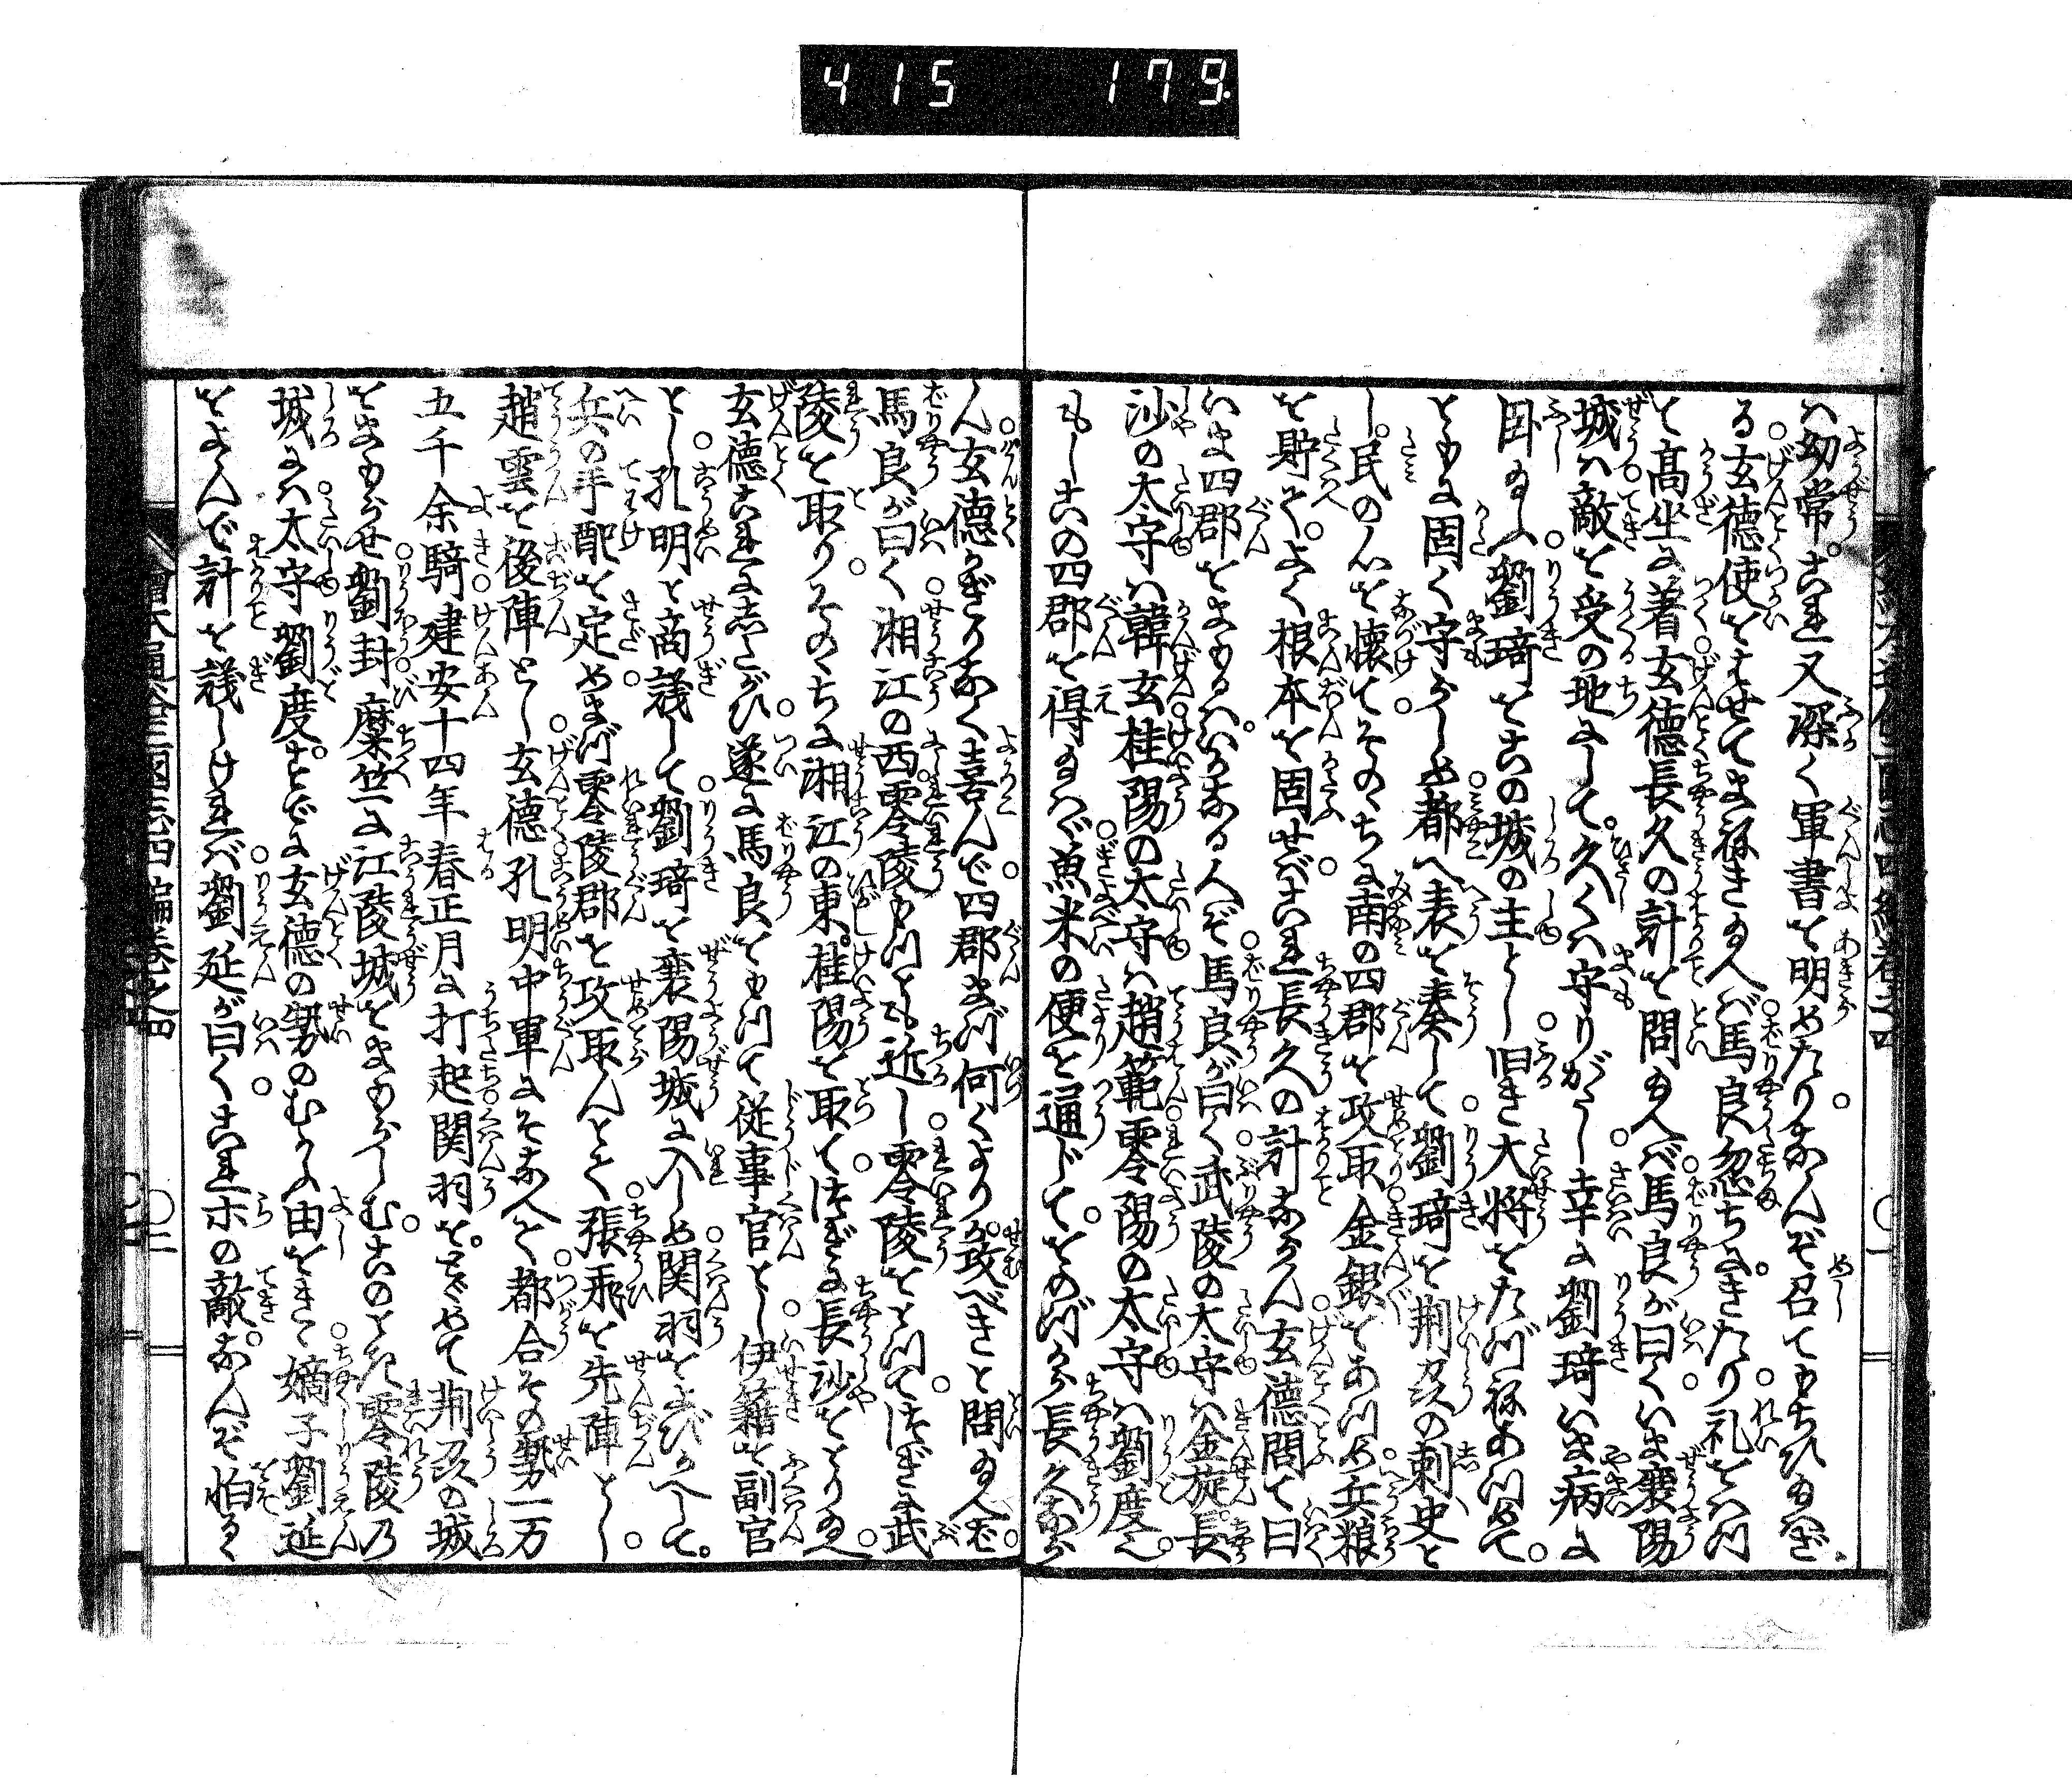 415 179
ハ幼常。これ又深く軍書を明めたり。なんぞ召てもちひ給はざ
る。玄徳使をはせてまねき給へバ。馬良忽ちにきたり。礼をはつ
て高坐に着。玄徳長久の計を問給へバ。馬良が曰く。いま襄陽
城ハ敵を受の地にして。久くハ守りがたし。幸に劉琦いま病に
臥給ふ。劉琦をこの城の主とし。旧き大将をたづねあつめて。
ともに固く守らしめ。都へ表を奏して。劉琦を荊州の刺史と
し。民の心を懐て。そのゝちに南の四郡を攻取。金銀をあつめ。兵粮
を貯て。よく根本を固せば。これ長久の計ならん。玄徳問て曰
いま四郡をまもるハ。いかなる人ぞ。馬良が曰く。武陵の太守ハ金旋。長
沙の太守ハ韓玄。桂陽の太守ハ趙範。零陽の太守ハ劉度也。
もしこの四郡を得給ハヾ。魚米の便を通じて。をのづから長久なら
ん。玄徳かぎりなく喜んで。四郡まづ何くよりか。攻べきと問給へば。
馬良が曰く。湘江の西。零陵もつとも近し。零陵をとつて。つぎに武
陵を取り。そのゝちに湘江の東。桂陽を取て。つぎに長沙をとり給へ。
玄徳これにしたがひ。遂に馬良をもつて従事官とし。伊籍を副官
とし。孔明と商議して。劉琦を襄陽城に入しめ。関羽をよびかへして。
兵の手配を定め。まづ零陵郡を攻取んとて。張飛を先陣とし。
趙雲を後陣とし。玄徳孔明中軍にそなへて。都合その勢一万
五千余騎。建安十四年春正月に打起。関羽を。とゞめて荊州の城
をまもらせ。劉封。糜竺に江陵城をまもらしむ。このとき零陵の
城にハ。太守劉度。すでに玄徳の勢のむかふ由をきゝ。嫡子劉延
をよんで計を議しければ。劉延が曰く。これホの敵。なんぞ怕るゝ